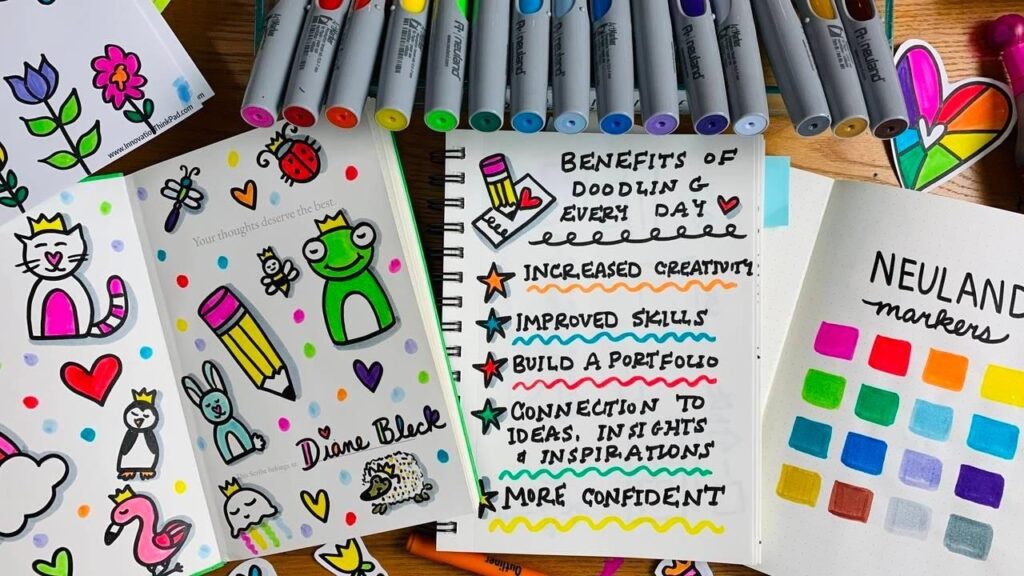 www.InnovationThinkPad.com
Your thoughts deserve the best.
Diane Bleck
This Scribe belongs to
BENEFITS OF
DOODLING
EVERY DAY
INCREASED CREATIVITY
IMPROVED SKILLS
BUILD A PORTFOLIO
CONNECTION TO
IDEAS, INSIGHTS
& INSPIRATIONS
MORE CONFIDENT
NEULAND
markers
neuland
neuland
neuland
neuland
Outliner